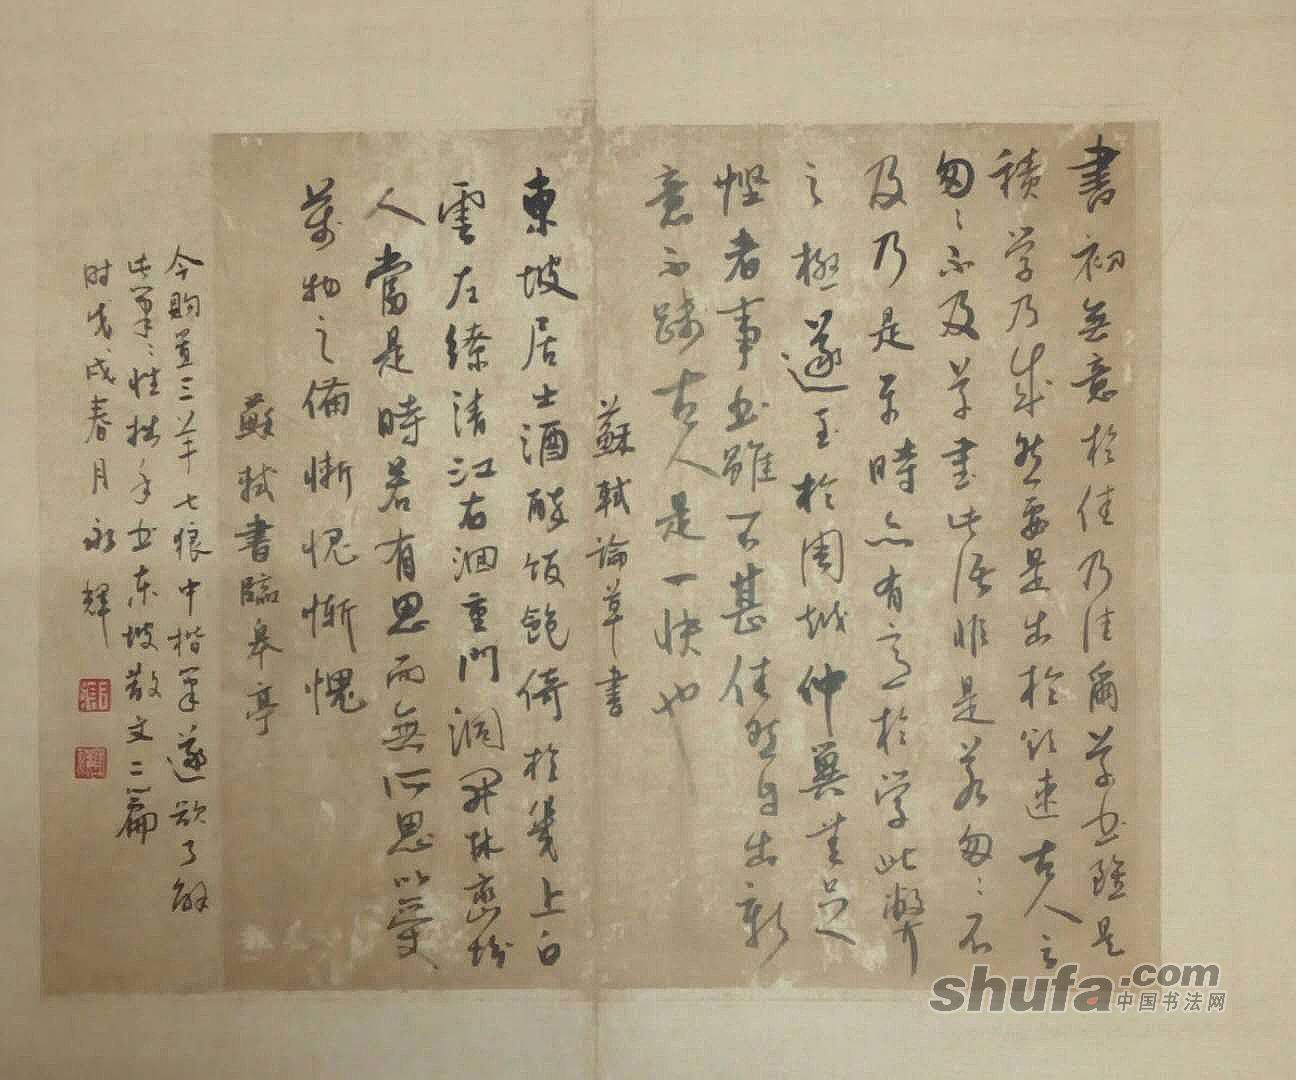 書初無意於佳乃佳爾草書雖是
積學乃成然要是出於欲速古人云
匆匆不及草書此語非是若匆匆不
及乃是平時亦有意於學此弊
之極遂至於周越仲翼無足
怪者事書雖不甚佳然自出新
意不踐古人是一快也
蘇軾論草書
東坡居士酒醉飯飽倚於幾上白
雲左繚清江右洄重門洞開林巒坋
人當是時若有思而無所思以受
萬物之備慚愧慚愧
蘇軾書臨皋亭
今購置三羊七狼中楷筆遂欲了解
此筆筆性拙手書東坡散文二篇
时戊戌春月永輝
shufa.com
中国书法网